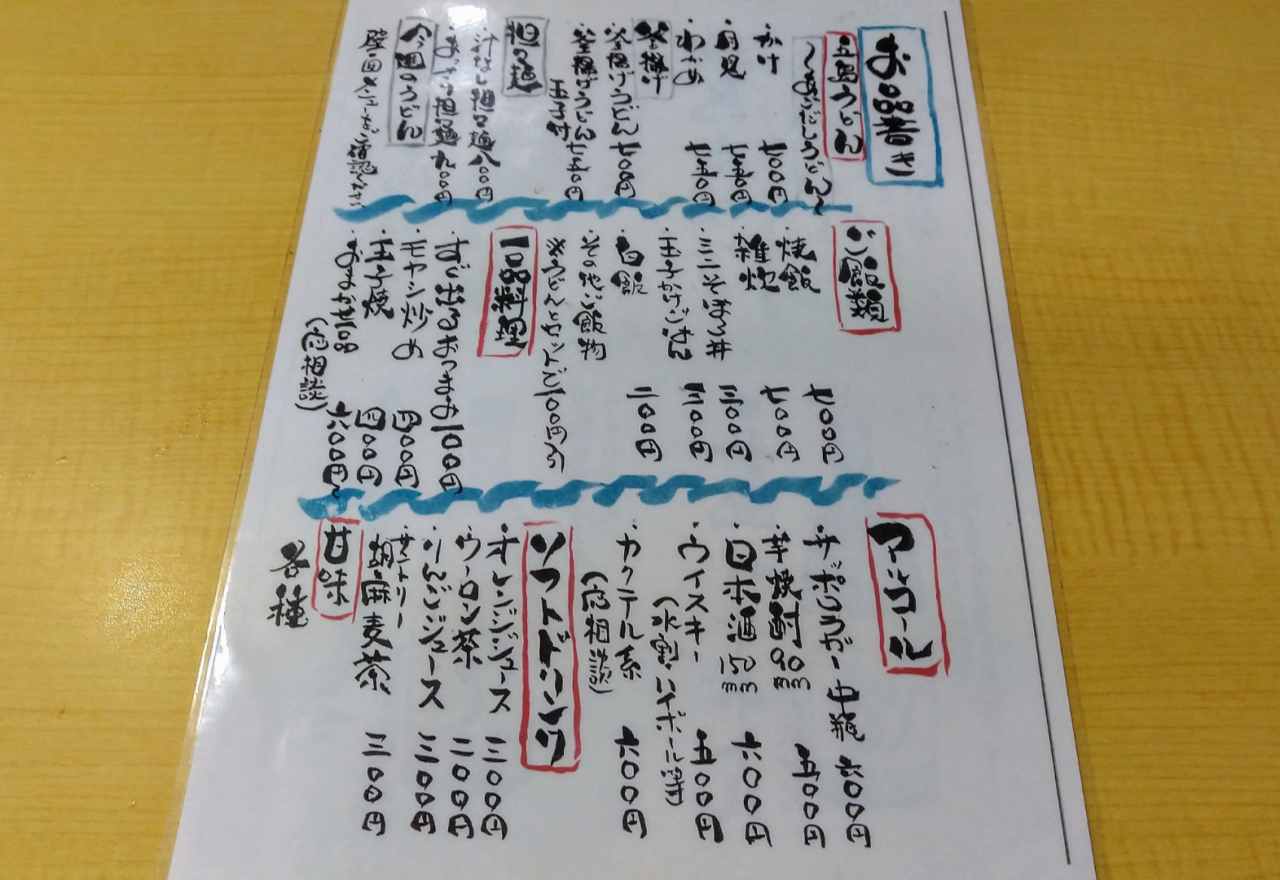 お品書き
五島うどん
〜あごだしうどん〜
・かけ 七〇〇円
・月見 七五〇円
・わかめ 七五〇円
釜揚げ
・釜揚げうどん 七〇〇円
・釜揚げうどん
玉子付 七五〇円
担々麺
・汁なし担々麺 八〇〇円
・担々麺 九〇〇円
今週のうどん
壁面メニューをご確認ください
ご飯類
・焼飯 七〇〇円
・雑炊 七〇〇円
・ミニそぼろ丼 三〇〇円
・玉子かけごはん 三〇〇円
・白飯 二〇〇円
・その他ご飯物
※うどんとセットで100円引
一品料理
・すぐ出るおつまみ 100円
・モヤシ炒め 四〇〇円
・玉子焼 四〇〇円
・おまかせ1品 六〇〇円〜
(応相談)
アルコール
・サッポロラガー中瓶 六〇〇円
・芋焼酎90mm 五〇〇円
・日本酒150mm 六〇〇円
・ウイスキー 五〇〇円
(水割・ハイボール等)
・カクテル系 六〇〇円
(応相談)
ソフトドリンク
・オレンジジュース 三〇〇円
・ウーロン茶 二〇〇円
・りんごジュース 三〇〇円
・サントリー
胡麻麦茶 三〇〇円
甘味
各種